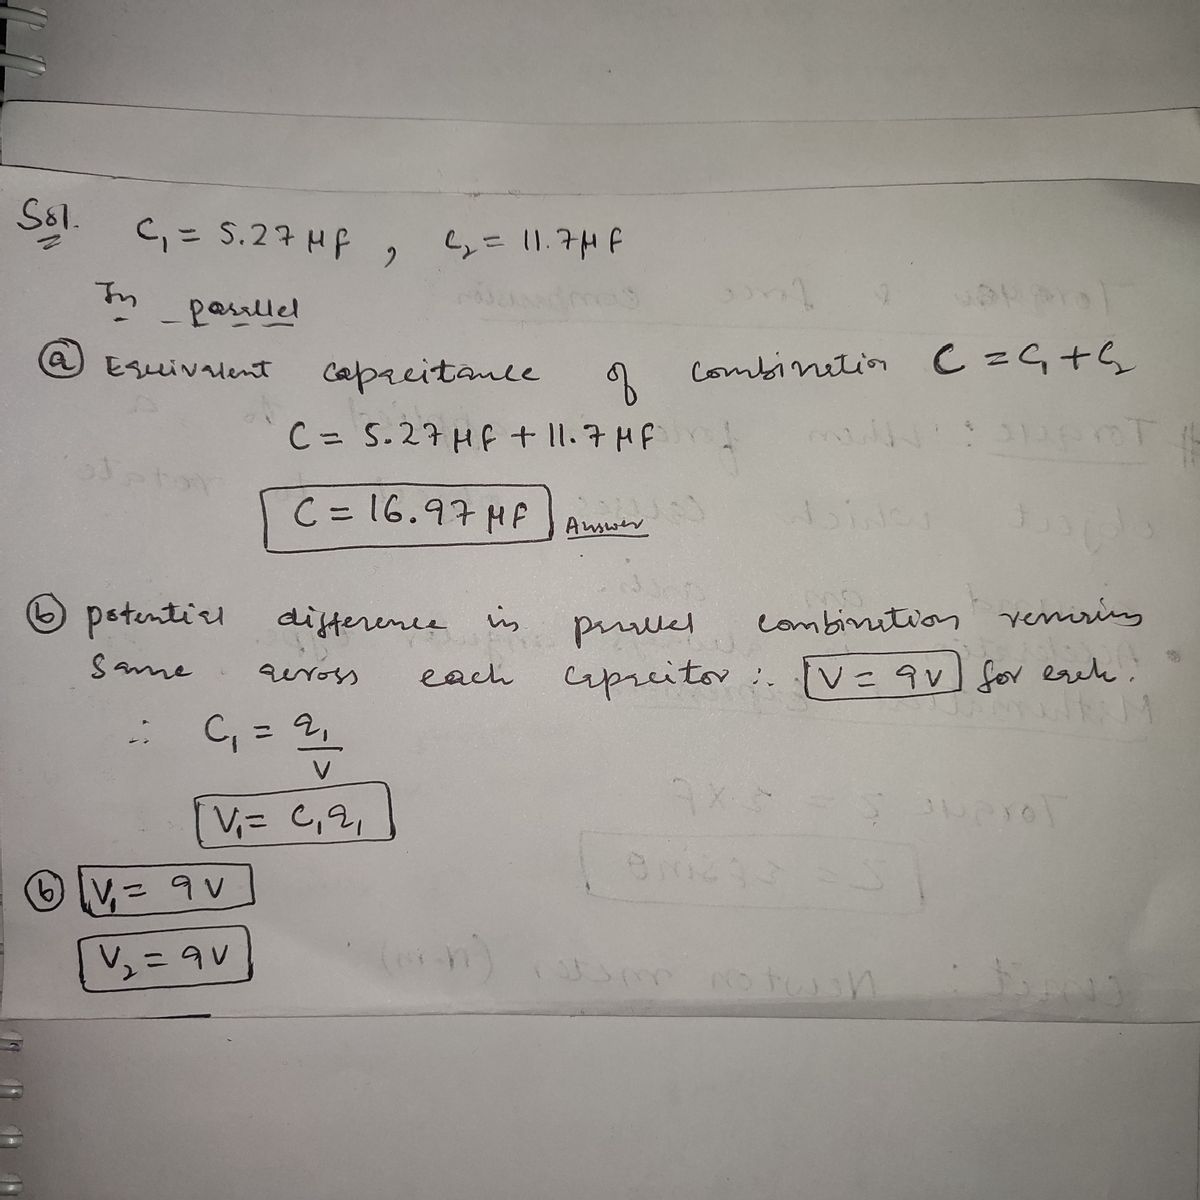 Sol. C₁ = 5.27 μF , C₂ = 11.7 μF
In parallel
(a) Equivalent capacitance of combination C = C₁ + C₂
C = 5.27 μF + 11.7 μF
C = 16.97 μF Answer
(b) potential difference in parallel combination remains
same across each capacitor ∴ V = 9V for each.
∴ C₁ = q₁/V
V₁ = C₁q₁
(b) V₁ = 9V
V₂ = 9V